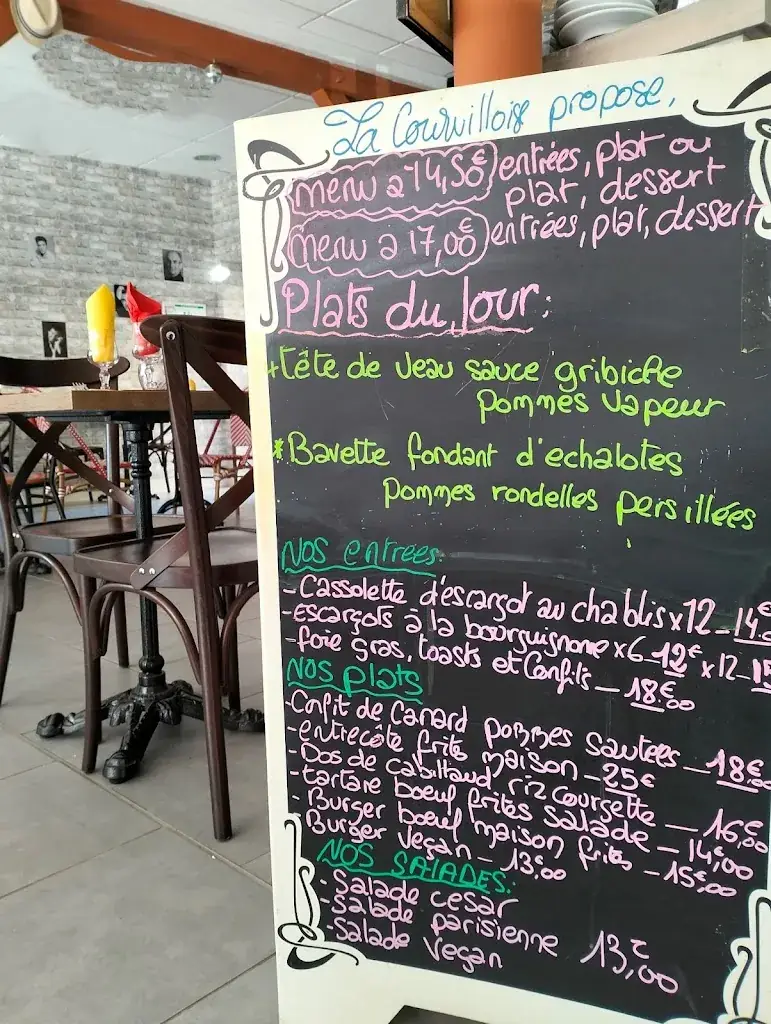 La Courvilloise propose,
menu a 14,50€ entrées, plat ou
plat, dessert
menu a 17,00€ entrées, plat, dessert
Plats du Jour:
+ tête de veau sauce gribiche
pommes vapeur
* Bavette fondant d'echalotes
pommes rondelles persillées
Nos entrees:
- Cassolette d'escargot au chablis x12 - 14€
- escargots à la bourguignonne x6 - 12€ x12 -
- foie gras, toasts et Confits - 18€00
Nos plats
- Confit de Canard pommes sautees - 18€
- entrecôte frite maison - 25€
- Dos de cabillaud riz courgette - 16€00
- tartare boeuf frites salade - 14€,00
- Burger boeuf maison frites - 15€00
- Burger Vegan - 13€00
Nos SALADES:
- Salade cesar
- salade parisienne 13€,00
- Salade Vegan